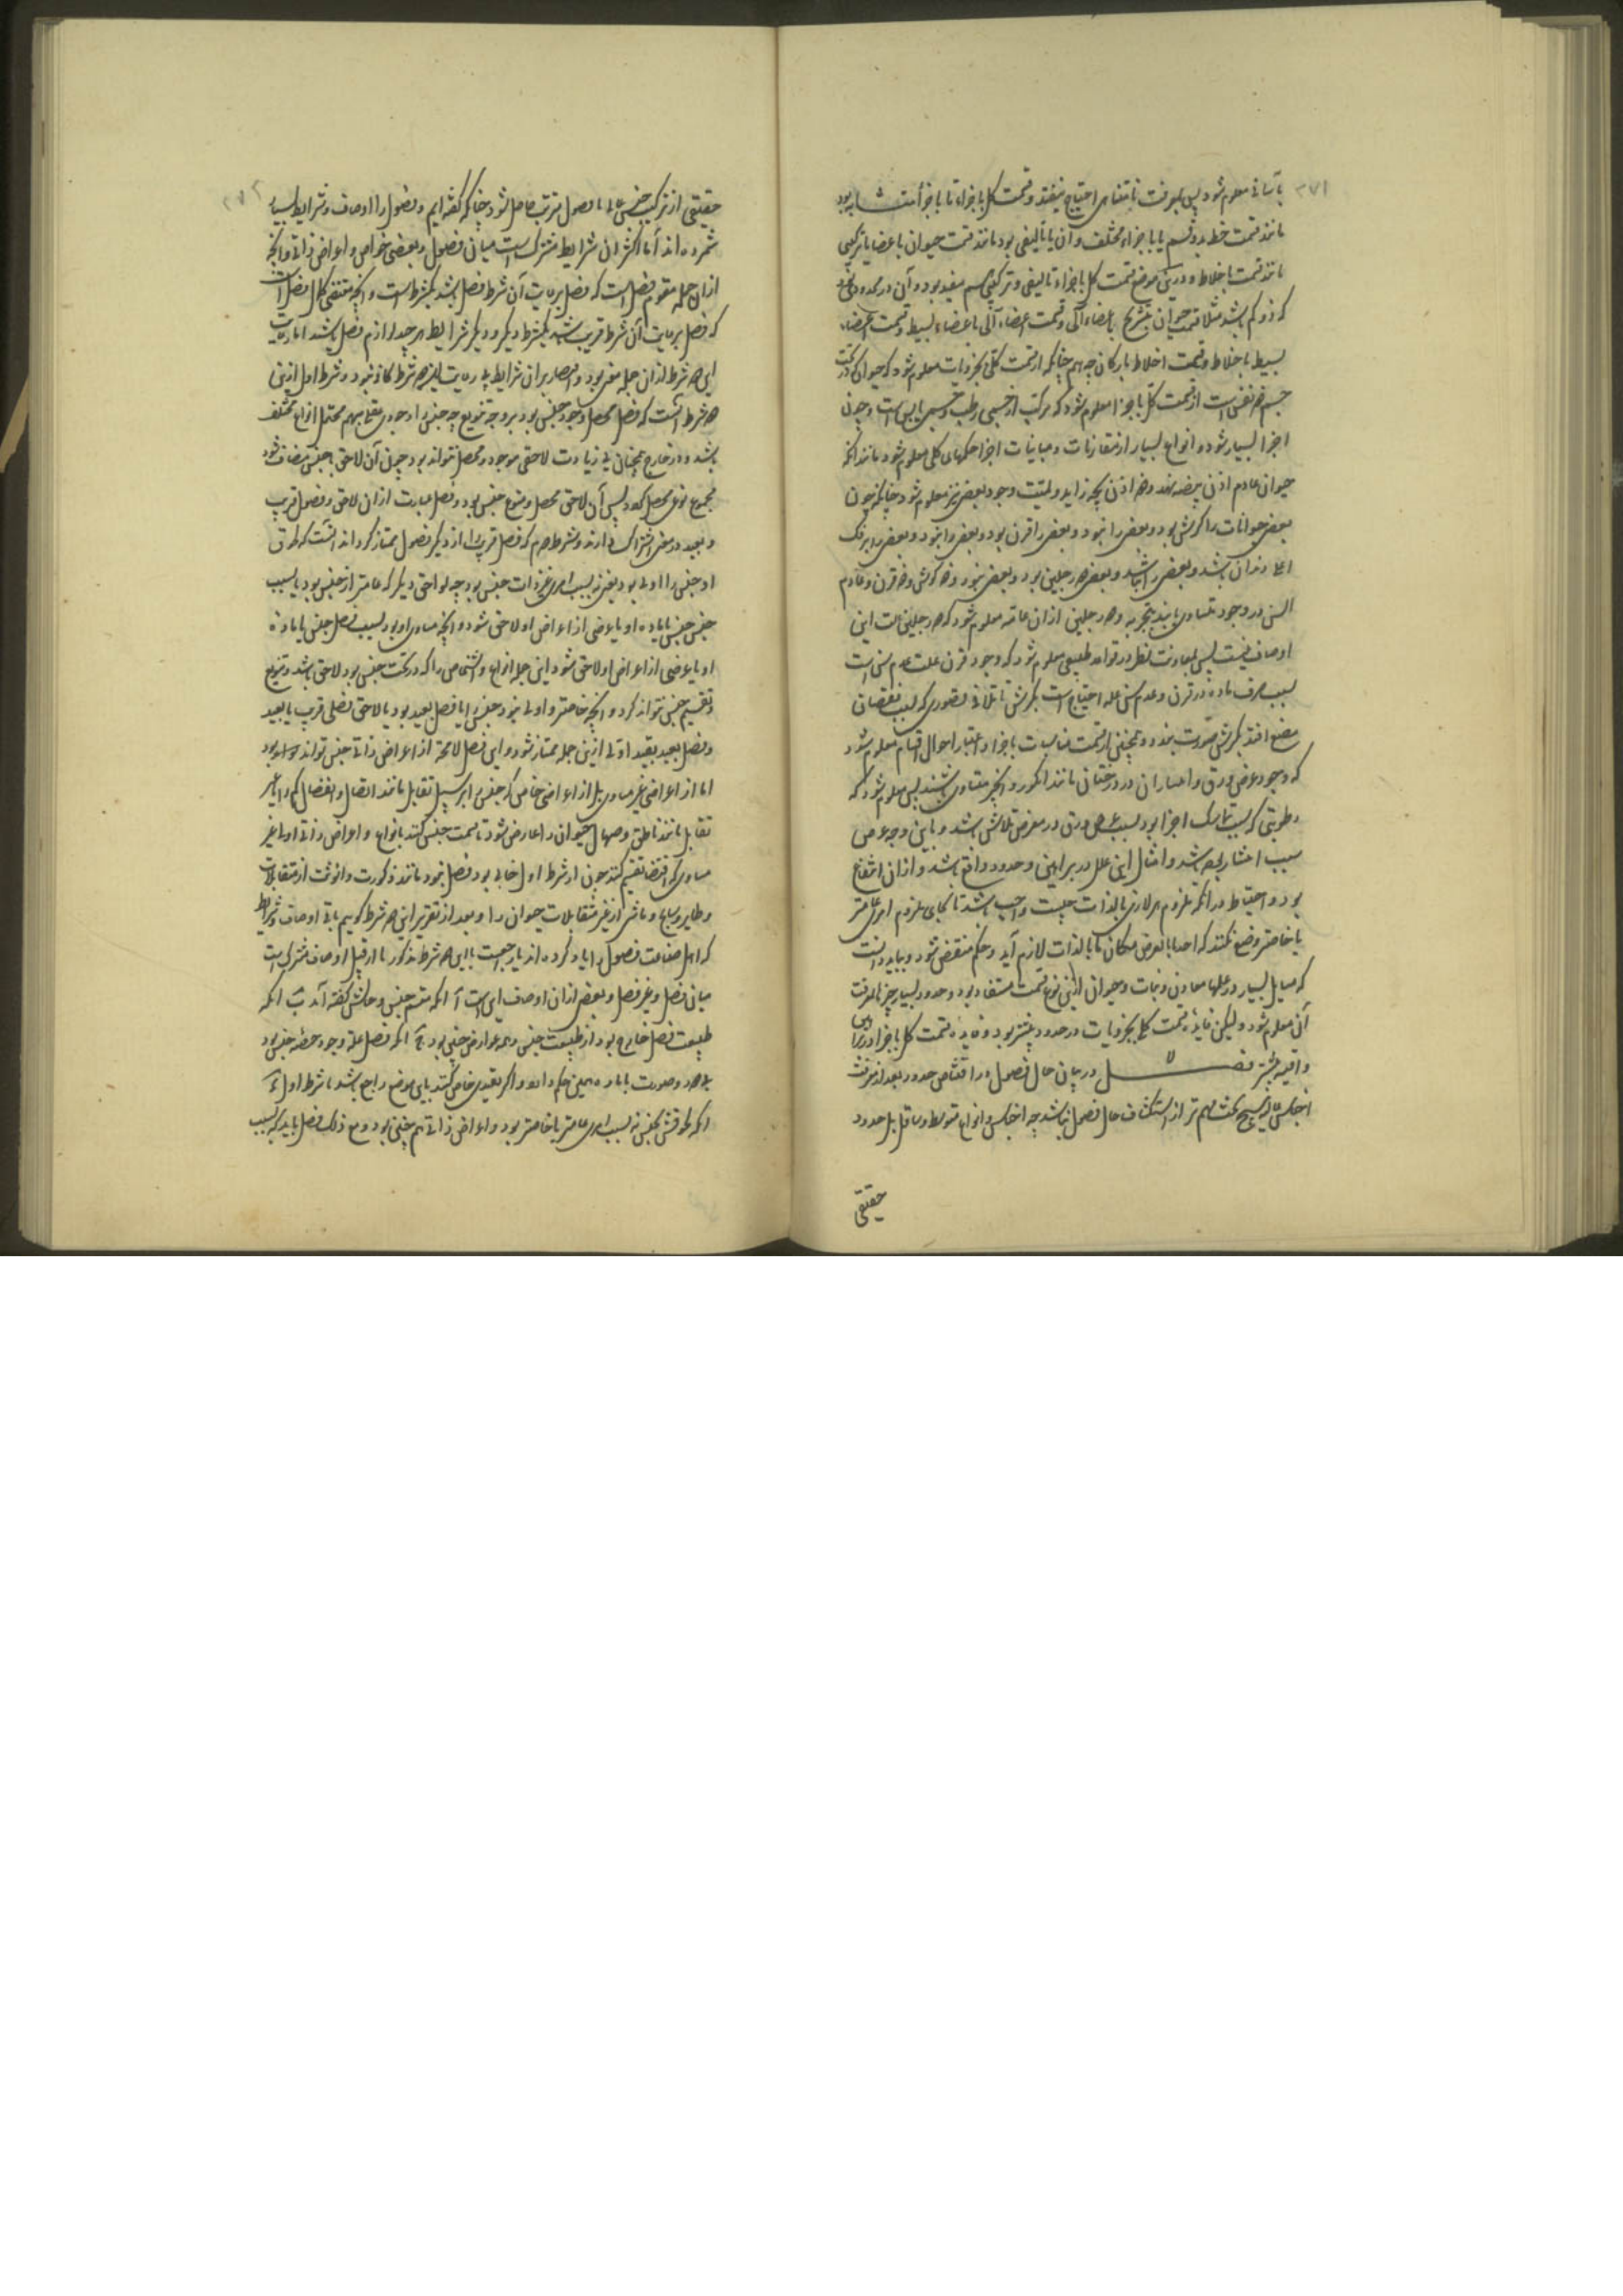 ۲۷۱
بآسانی معلوم شود پس بمعرفت باقتناص احتیاج نیفتد و قسمت کل باجزاء تا باجزاء متشابه بود
مانند قسمت خط بدو قسم یا باجزاء مختلف و آن یا تالیفی بود مانند قسمت حیوان باعضا یا ترکیبی
مانند قسمت باخلاط و درین موضع قسمت کل باجزاء تالیفی و ترکیبی هم مفید بود و آن در محدودی بود
که ذو کم باشد مثلا قسمت حیوان بتشریح باعضاء آلی و قسمت اعضاء آلی باعضاء بسیط و قسمت اعضاء
بسیط باخلاط و قسمت اخلاط بارکان چه هم چنانکه از قسمت کلی بجزویات معلوم شود که حیوان در تحت
جسم ذو نفس است از قسمت کل باجزا معلوم شود که مرکب از جسمی رطب و جسمی یابس است و چون
اجزا بسیار شود و انواع بسیار از مقارنات و مباینات اجزا حکمهای کلی معلوم شود مانند آنکه
حیوان عادم اذن بیضه نهد و ذو اذن بچه زاید و لمیت وجود بعضی نیز معلوم شود چنانکه چون
بعضی حیوانات را کرش بود و بعضی را نبود و بعضی را قرن بود و بعضی را نبود و بعضی را بر فک
اعلا دندان باشد و بعضی را نباشد و بعضی ذو رجلین بود و بعضی نبود و ذو کرش و ذو قرن و عادم
السن در وجود متساوی یابند بتجربه و ذو رجلین ازان عامتر معلوم شود که ذو رجلین علت این
اوصاف نیست پس بمعاونت نظر در قواعد طبیعی معلوم شود که وجود قرن علت عدم سن است
بسبب صرف ماده در قرن و عدم سن علت احتیاج است بکرش تا تلافی قصوری که بسبب نقصان
مضغ افتد بکرش صورت بندد و همچنین از قسمت مناسبات باجزا و اعتبار احوال اقسام معلوم شود
که وجود عرض ورق و انتشار آن در درختان مانند انگور و انجیر متساوی باشند پس معلوم شود که
رطوبتی که سبب تماسک اجزا بود بسبب عرض ورق در معرض تلاشی باشد و باین وجه عرض
سبب انتشار ورق باشد و امثال این علل در براهین و حدود واقع باشد و ازان انتفاع
بود و احتیاط در آنکه ملزوم هر لازمی بالذات چیست واجب باشد تا بجای ملزوم امری عامتر
یا خاصتر وضع نکنند که اخذ ما بالعرض مکان ما بالذات لازم آید و حکم منتقض شود و بباید دانست
که مسایل بسیار در علمها معادن و نبات و حیوان ازین نوع قسمت مستفاد بود و حدود بسیار چیز بمعرفت
آن معلوم شود و لیکن فایده قسمت کلی بجزویات در حدود بیشتر بود و فایده قسمت کل باجزا در براهین
و اقیسه بیشتر فصل در بیان حال فصول و در اقتناص حدود بعد از معرفت
اجناس عالیه هیچ بحث مهم‌تر از استکشاف حال فصول نباشد چه اجناس و انواع متوسط و سافل بل حدود
حقیقی
۲۷۲
حقیقی از ترکیب جنس عالی با فصول مترتب حاصل شود چنانکه گفته ایم و فصول را اوصاف و شرایط بسیار
شمرده اند اما اکثر آن شرایط مشترک است میان فصول و بعضی خواص و اعراض ذاتی و آنچه
ازان جمله مقوم فصل است که فصل برعایت آن شرط فصل باشد یک شرط است و آنچه مقتضی کمال فصل است
که فصل برعایت آن شرط قریب باشد یک شرط دیگر و دیگر شرایط هر چند لوازم فصل باشد اما رعایت
این دو شرط ازان جمله مغنی بود و اقتصار بران شرایط بی رعایت این دو شرط کافی نبود و شرط اول ازین
دو شرط آنست که فصل محصل وجود جنس بود بر وجه تنویع چه جنس را وجودی عقلی مبهم محتمل انواع مختلف
باشد و در خارج همچنان بی زیادت لاحقی موجود و محصل نتواند بود چون آن لاحق بجنس مضاف شود
مجموع نوعی محصل گردد پس آن لاحق محصل و منوع جنس بود و فصل عبارت ازان لاحق و فصول قریب
و بعید در معنی اشتراک دارند و شرط دوم که فصل قریب را از دیگر فصول ممتاز گرداند آنست که لحوق
او جنس را اولی بود یعنی نه بسبب امری غیر ذات جنس بود چه لواحق دیگر که عامتر از جنس بود یا بسبب
جنس جنس یا ماده او یا عرضی از اعراض او لاحق شود و آنچه مساوی او بود بسبب فصل جنس یا ماده
او یا عرضی از اعراض او لاحق شود این جمله انواع و اشخاص را که در تحت جنس بود لاحق باشد و تنویع
و تقسیم جنس نتواند کرد و آنچه خاصتر و اولی نبود جنس را یا فصل بعید بود یا لاحق فصلی قریب یا بعید
و فصل بعید بقید اولی ازین جمله ممتاز شود و این فصل لامحاله از اعراض ذاتی جنس تواند بود
اما از اعراض غیر مساوی بل از اعراض خاص که جنس را بر سبیل تقابل مانند اتصال و انفصال کم را یا غیر
تقابل مانند ناطق و صهال حیوان را عارض شود تا قسمت جنس کند بانواع و اعراض ذاتی اولی غیر
مساوی که اقتضاء تقسیم کند چون از شرط اول خالی بود فصل نبود مانند ذکورت و انوثت از متقابلات
و طایر و سابح و ماشی از غیر متقابلات حیوان را و بعد از تقریر این دو شرط گوییم باقی اوصاف و شرایط
که اهل صناعت فصول را یاد کرده اند یا راجعست با این دو شرط مذکور یا از قبیل اوصاف مشترک است
میان فصل و غیر فصل و بعضی ازان اوصاف این است آ آنکه مقسم جنس و مثالش گفته آمد ب آنکه
طبیعت فصل خارج بود از طبیعت جنس و همه عوارض چنین بود ج آنکه فصل علت وجود حصه جنس بود
و صورت با ماده همین حکم دارد و اگر بقیدی خاص کنند باین موضع راجع باشد با شرط اول د
آنکه لحوقش بجنس نه بسبب امری عامتر یا خاصتر بود و اعراض ذاتی هم چنین بود و مع ذلک فصل باید که بسبب